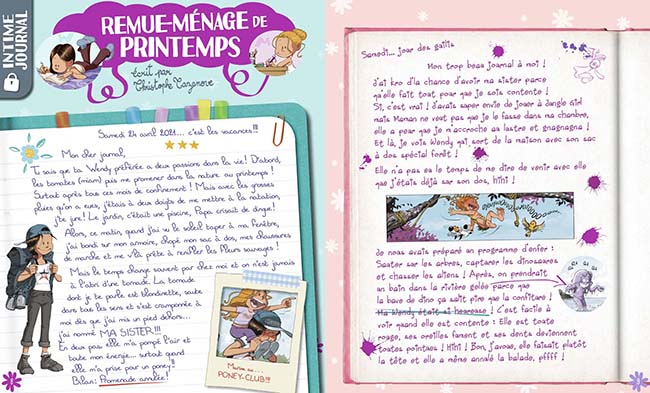 INTIME
JOURNAL
REMUE-MÉNAGE DE
PRINTEMPS
écrit par
Christophe Cazenove
Samedi 24 avril 2021... c'est les vacances!!!
Mon cher journal,
Tu sais que ta Wendy préférée a deux passions dans la vie! D'abord,
les tomates (miam) puis me promener dans la nature au printemps!
Surtout après tous ces mois de confinement! Mais avec les grosses
pluies qu'on a eues, j'étais à deux doigts de me mettre à la natation,
j'te jure! Le jardin, c'était une piscine, Papa crisait de dingue!
Alors, ce matin, quand j'ai vu le soleil taper à ma fenêtre,
j'ai bondi sur mon armoire, chopé mon sac à dos, mes chaussures
de marche et me v'là prête à renifler les fleurs sauvages!
Mais le temps change souvent par chez moi et on n'est jamais
à l'abri d'une tornade. La tornade
dont je te parle est blondinette, saute
dans tous les sens et s'est cramponnée à
moi dès que j'ai mis un pied dehors...
j'ai nommé MA SISTER!!!
En deux pas elle m'a pompé l'air et
toute mon énergie... surtout quand
elle m'a prise pour un poney!!
Bilan: Promenade annulée!
Marine au...
PONEY-CLUB!!!
Samedi... jour des gailis
Mon trop beau journal à moi !
J'ai kro d'la chance d'avoir ma sister parce
qu'elle fait tout pour que je sois contente !
Si, c'est vrai ! J'avais super envie de jouer à Jungle Girl
mais Maman ne veut pas que je le fasse dans ma chambre,
elle a peur que je m'accroche au lustre et gnagnagna !
Et là, je vois Wendy qui sort de la maison avec son sac
à dos spécial forêt !
Elle n'a pas eu le temps de me dire de venir avec elle
que j'étais déjà sur son dos, hihi !
Je nous avais préparé un programme d'enfer :
Sauter sur les arbres, capturer les dinosaures
et chasser les aliens ! Après, on prendrait
un bain dans la rivière gelée parce que
la bave de dino ça salit pire que la confiture !
Ma Wendy était si heureuse ! C'est facile à
voir quand elle est contente : Elle est toute
rouge, ses oreilles fument et ses dents deviennent
toutes pointues ! Hihi ! Bon, j'avoue, elle faisait plutôt
la tête et elle a même annulé la balade, pffff !